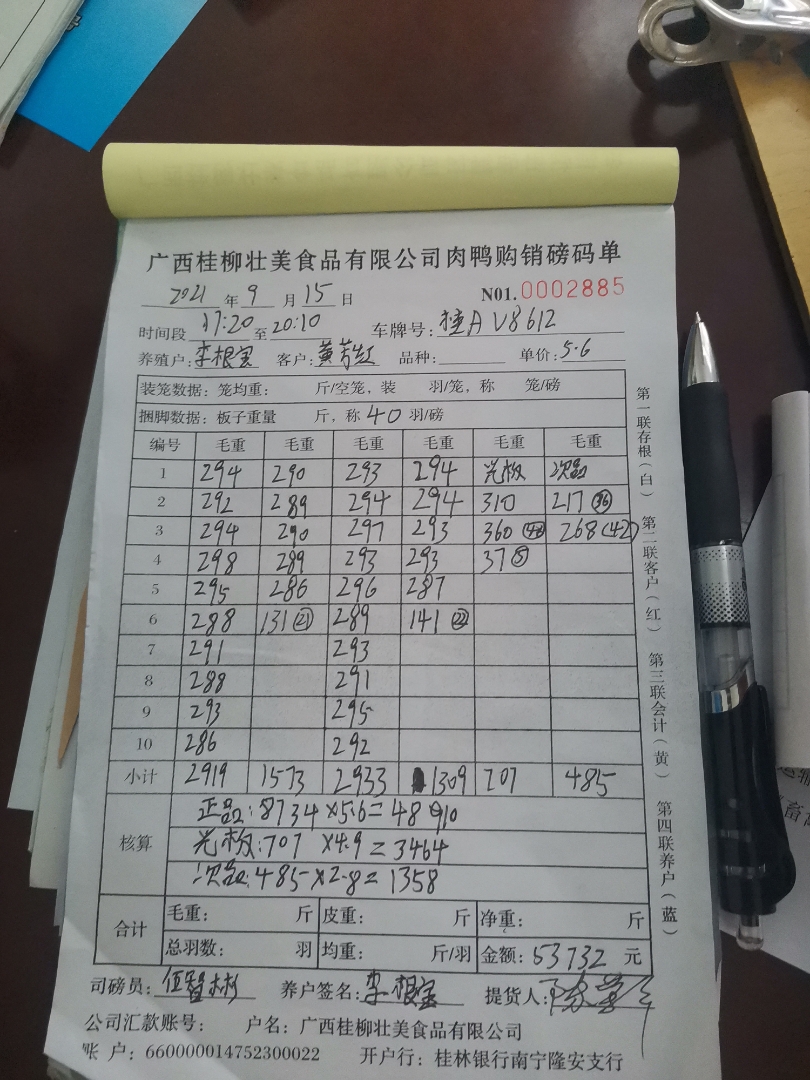 广西桂柳壮美食品有限公司肉鸭购销磅码单
2021 年 9 月 15 日 N01.0002885
时间段 17:20 至 20:10 车牌号: 桂A V8612
养殖户: 李根宝 客户: 黄芳红 品种: 单价: 5.6
装笼数据: 笼均重: 斤/空笼, 装 羽/笼, 称 笼/磅
捆脚数据: 板子重量 斤, 称 40 羽/磅
编号 毛重 毛重 毛重 毛重 毛重 毛重
1 294 290 293 294 光板 次品
2 292 289 294 294 310 217 (36)
3 294 290 297 293 360 268 (42)
4 298 289 293 293 37
5 295 286 296 287
6 288 131 (21) 289 141
7 291 293
8 288 291
9 293 295
10 286 292
小计 2919 1573 2933 1309 707 485
核算
正品: 8734 ×5.6= 48910
光板: 707 ×4.9 = 3464
次品: 485 ×2.8= 1358
合计
毛重: 斤 皮重: 斤 净重: 斤
总羽数: 羽 均重: 斤/羽 金额: 53732 元
司磅员: 伍智彬 养户签名: 李根宝 提货人:
公司汇款账号: 户名: 广西桂柳壮美食品有限公司
账 户: 660000014752300022 开户行: 桂林银行南宁隆安支行
第一联存根(白) 第二联客户(红) 第三联会计(黄) 第四联养户(蓝)